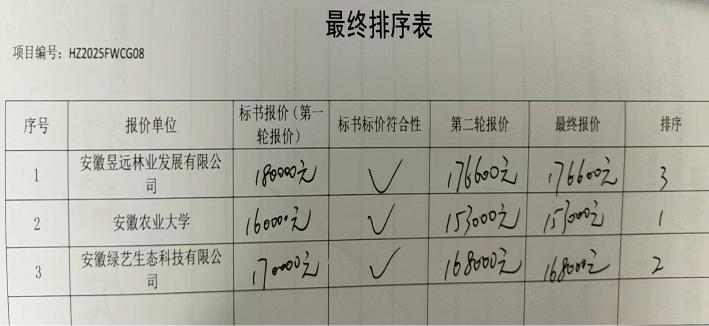 最终排序表
项目编号：HZ2025FWCG08
序号 报价单位 标书报价（第一轮报价） 标书标价符合性 第二轮报价 最终报价 排序
1 安徽昱远林业发展有限公司 180000元 ✓ 176600元 176600元 3
2 安徽农业大学 160000元 ✓ 153000元 153000元 1
3 安徽绿艺生态科技有限公司 170000元 ✓ 168000元 168000元 2